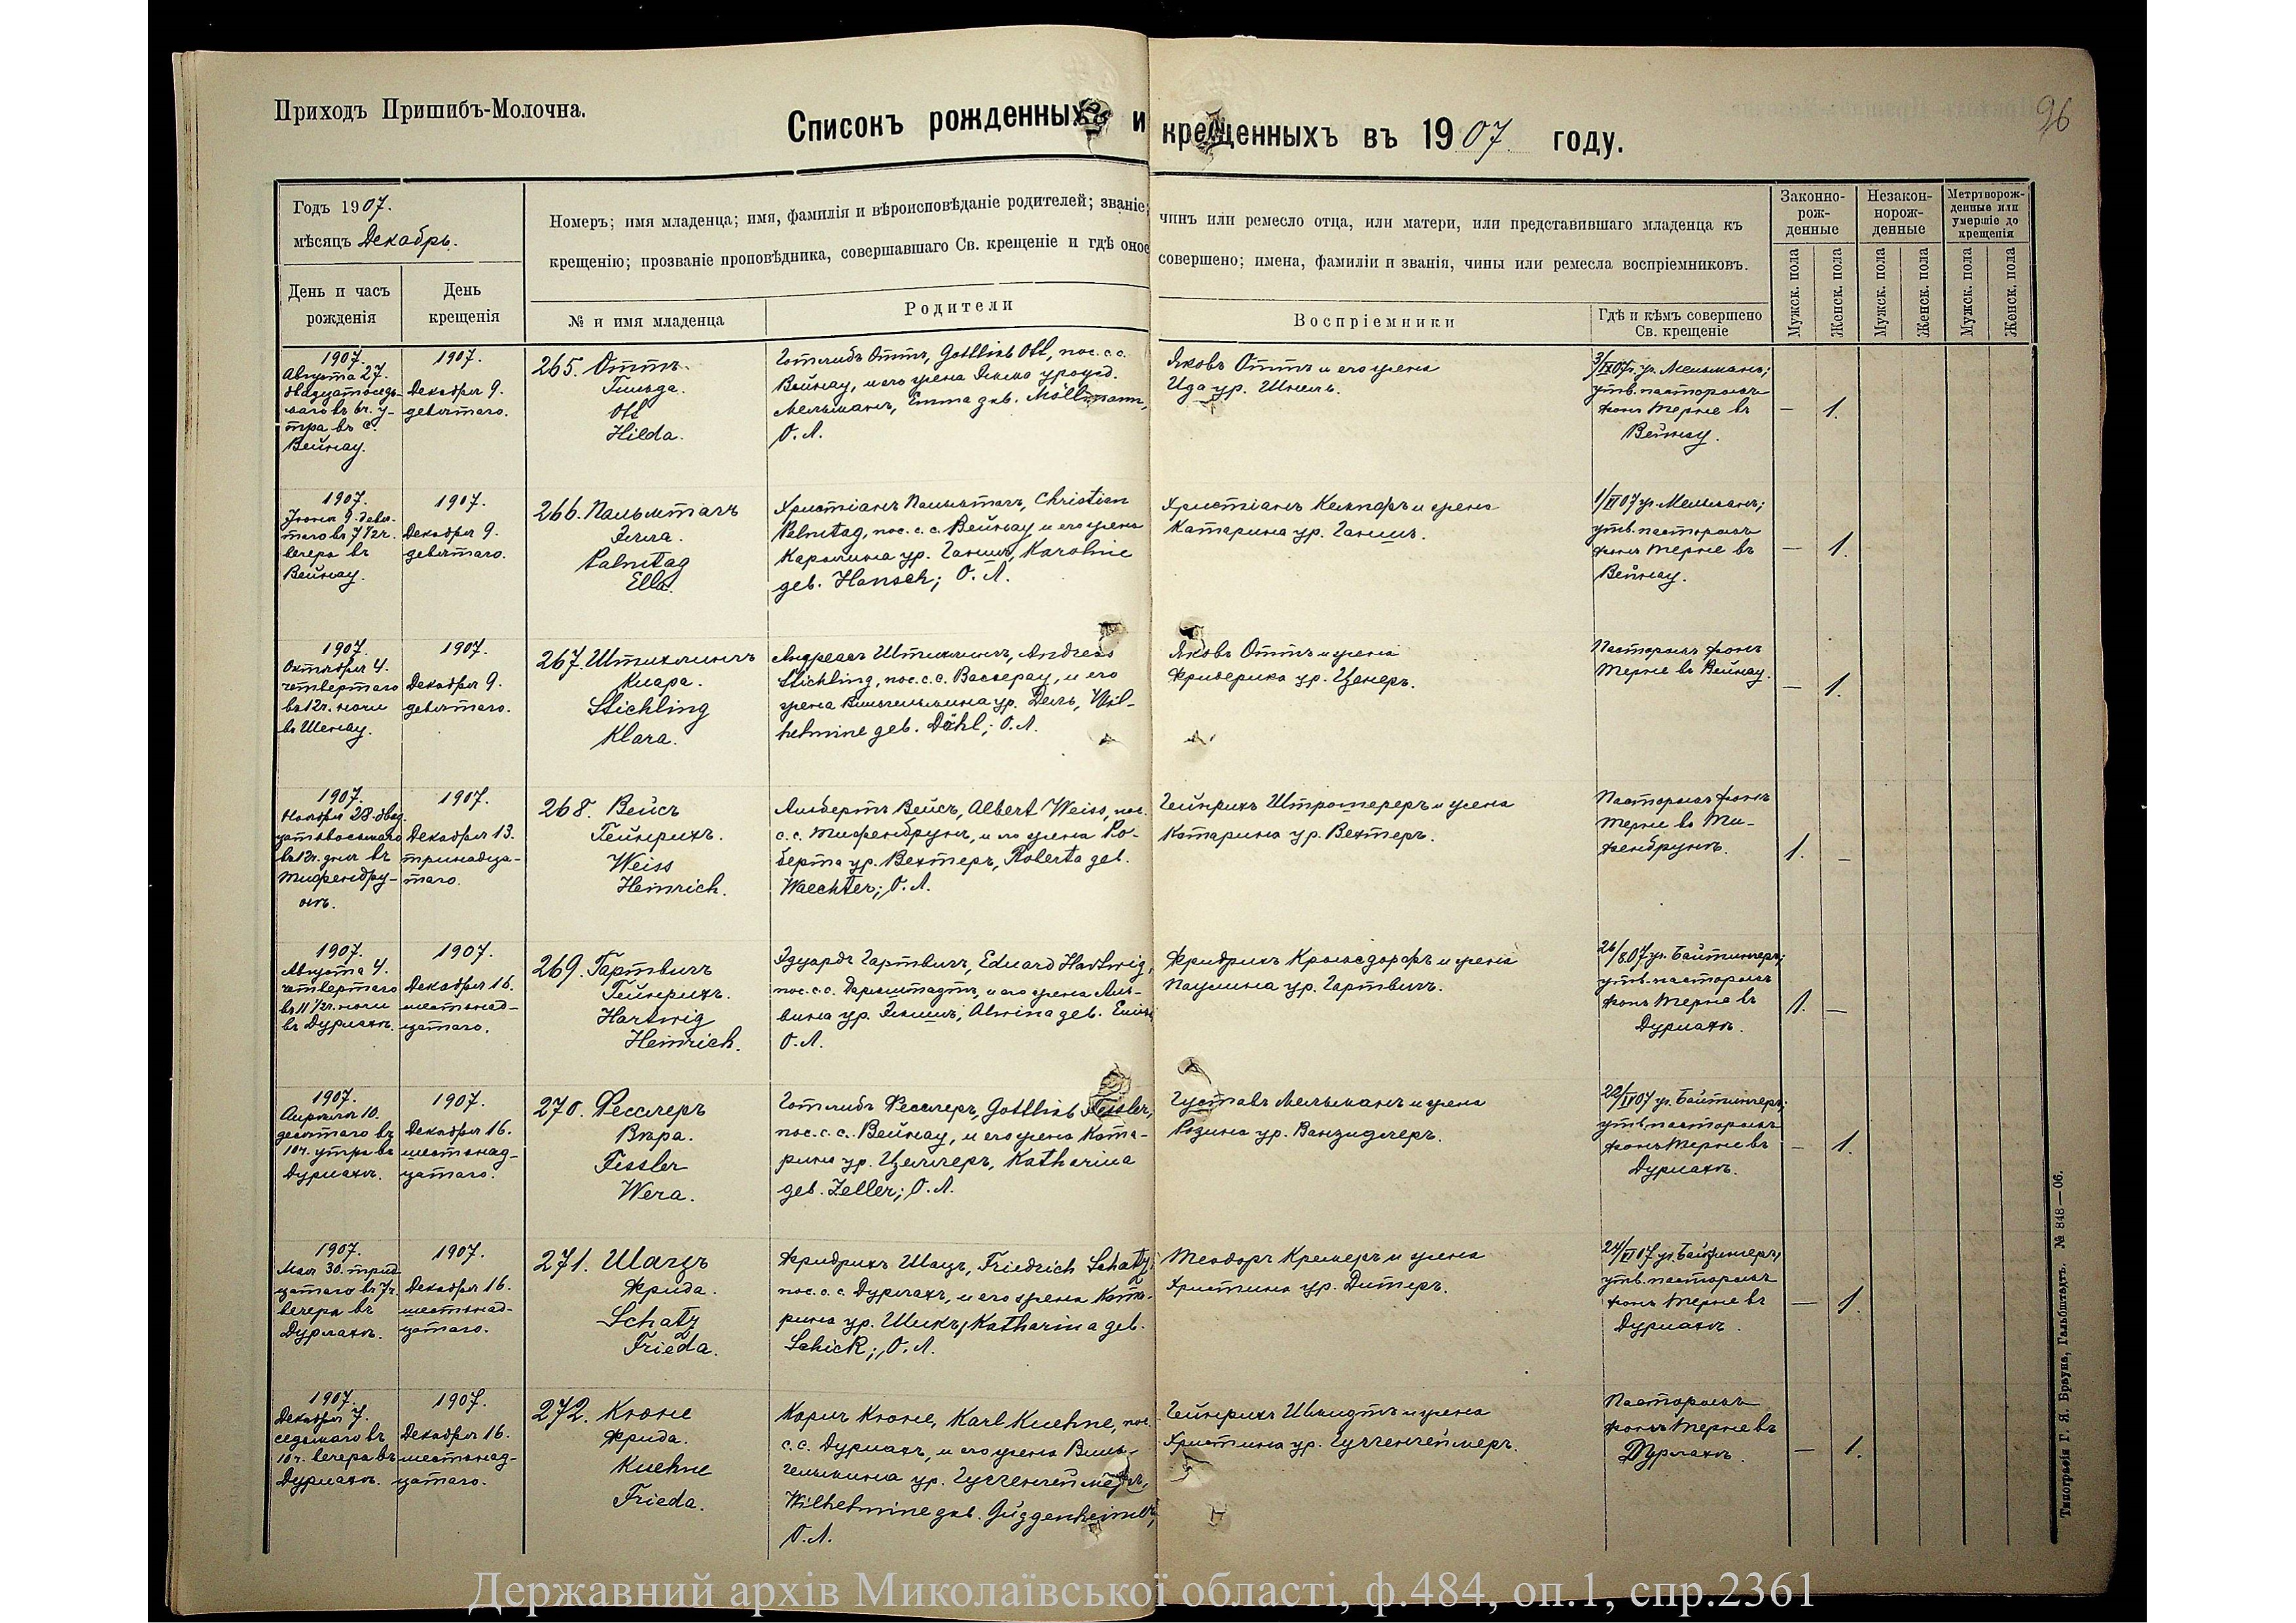 Приходъ Пришибъ-Молочна.
Списокъ рожденныхъ и крещенныхъ въ 1907 году.
96
Годъ 1907.
мѣсяцъ Декабрь.
Номеръ; имя младенца; имя, фамилія и вѣроисповѣданіе родителей; званіе, чинъ или ремесло отца, или матери, или представившаго младенца къ
крещенію; прозваніе проповѣдника, совершавшаго Св. крещеніе и гдѣ оное совершено; имена, фамиліи и званія, чины или ремесла воспріемниковъ.
Законно-
рож-
денные
Незакон-
норож-
денные
Метрворож-
денные или
умершіе до
крещенія
День и часъ
рожденія
День
крещенія
№ и имя младенца
Родители
Воспріемники
Гдѣ и кѣмъ совершено
Св. крещеніе
Мужск. пола
Женск. пола
Мужск. пола
Женск. пола
Мужск. пола
Женск. пола
1907.
Августа 27.
двадцатоседь-
маго въ 6ч. у-
тра въ с.
Вейнау.
1907.
Декабря 9.
девятаго.
265. Оттъ.
Гильда.
Ott
Hilda.
Готлибъ Оттъ, Gottlieb Ott, пос. с.с.
Вейнау, и его жена Эмма урожд.
Мельманъ, Emma geb. Möllmann,
О. Л.
Яковъ Оттъ и его жена
Ида ур. Шнель.
3/IX07г. ур. Мельманъ;
утв. пасторомъ
фонъ Терне въ
Вейнау.
— 1.
1907.
Іюня 9. девя-
таго въ 7 1/2ч.
вечера въ
Вейнау.
1907.
Декабря 9.
девятаго.
266. Пальмтагъ
Элла.
Palmtag
Ella.
Христіанъ Пальмтагъ, Christian
Palmtag, пос. с. с. Вейнау и его жена
Каролина ур. Ганшъ, Karoline
geb. Hansch; О. Л.
Христіанъ Кемпфъ и жена
Катарина ур. Ганшъ.
утв. пасторомъ
фонъ Терне въ
Вейнау.
— 1.
1907.
Октября 4.
четвертаго
въ 12ч. ночи
въ Шенау.
1907.
Декабря 9.
девятаго.
267. Штихлингъ
Клара.
Stichling
Klara.
Андреасъ Штихлингъ, Andreas
Stichling, пос. с.с. Вассерау, и его
жена Вильгельмина ур. Дель, Wil-
helmine geb. Döhl; О. Л.
Яковъ Оттъ и жена
Фридерика ур. Ценеръ.
Пасторомъ фонъ
Терне въ Вейнау.
— 1.
1907.
Ноября 28. двад-
цатьвосьмаго
въ 12ч. дня въ
Тифенбру-
нѣ.
1907.
Декабря 13.
тринадца-
таго.
268. Вейсъ
Гейнрихъ.
Weiss
Heinrich.
Альбертъ Вейсъ, Albert Weiss, пос.
с. с. Тифенбрунъ, и его жена Ро-
берта ур. Вехтеръ, Roberta geb.
Waechter; О. Л.
Гейнрихъ Штромгереръ и жена
Катарина ур. Вехтеръ.
Пасторомъ фонъ
Терне въ Ти-
фенбрунѣ.
1. —
1907.
Августа 4.
четвертаго
въ 11 1/2ч. ночи
въ Дурлахѣ.
1907.
Декабря 16.
шестьнад-
цатаго.
269. Гартвигъ
Гейнрихъ.
Hartwig
Heinrich.
Эдуардъ Гартвигъ, Eduard Hartwig,
пос. с. с. Дармштадтъ, и его жена Аль-
вина ур. Alwina geb.
О. Л.
Фридрихъ Кронсдорфъ и жена
Паулина ур. Гартвигъ.
26/8.07 ур. Байтингеръ;
утв. пасторомъ
фонъ Терне въ
Дурлахѣ.
1. —
1907.
Апрѣля 10.
десятаго въ
10ч. утра въ
Дурлахѣ.
1907.
Декабря 16.
шестьнад-
цатаго.
270. Фесслеръ
Вѣра.
Fessler
Wera.
Готлибъ Фесслеръ, Gottlieb Fessler,
пос. с. с. Вейнау, и его жена Ката-
рина ур. Целлеръ, Katharina
geb. Zeller; О. Л.
Густавъ Мельманъ и жена
Розина ур. Ванзидлеръ.
22/IV07 ур. Байтингеръ;
утв. пасторомъ
фонъ Терне въ
Дурлахѣ.
— 1.
1907.
Мая 30. трид-
цатаго въ 7ч.
вечера въ
Дурлахѣ.
1907.
Декабря 16.
шестьнад-
цатаго.
271. Шацъ
Фрида.
Schatz
Frieda.
Фридрихъ Шацъ, Friedrich Schatz,
пос. с. с. Дурлахъ, и его жена Ката-
рина ур. Шикъ, Katharina geb.
Schick; О. Л.
Теодоръ Кремеръ и жена
Христина ур. Дитеръ.
24/VI07 ур. Байтингеръ;
утв. пасторомъ
фонъ Терне въ
Дурлахѣ.
— 1.
1907.
Декабря 7.
седьмаго въ
10ч. вечера въ
Дурлахѣ.
1907.
Декабря 16.
шестьнад-
цатаго.
272. Кюне
Фрида.
Kuehne
Frieda.
Карлъ Кюне, Karl Kuehne, пос.
с. с. Дурлахъ, и его жена Виль-
гельмина ур. Гуггенгеймеръ,
Wilhelmine geb. Guggenheimer,
О. Л.
Гейнрихъ Шмидтъ и жена
Христина ур. Гуггенгеймеръ.
Пасторомъ
фонъ Терне въ
Дурлахѣ.
— 1.
Типографія Г. Я. Брауна, Гальбштадтъ. № 848—06.
Державний архів Миколаївської області, ф.484, оп.1, спр.2361